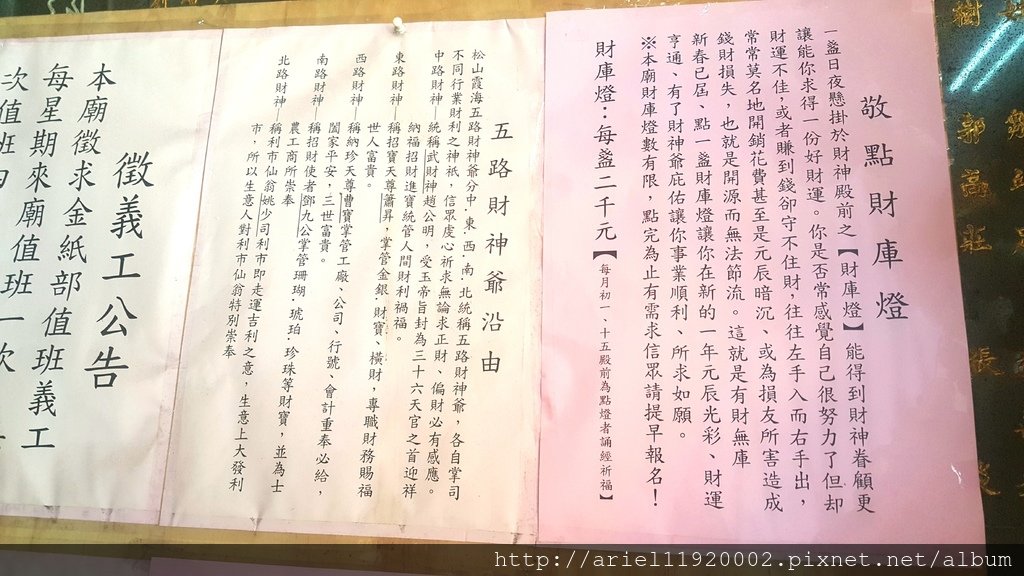 敬點財庫燈
一盞日夜懸掛於財神殿前之【財庫燈】能得到財神眷顧更
讓能你求得一份好財運。你是否常感覺自己很努力了但却
財運不住,或者賺到錢卻守不住財,往往左手入而右手出,
常常莫名地開銷花費甚至是元辰暗沉、或為損友所害造成
錢財損失,也就是開源而無法節流。這就是有財無庫
新春已屆、點一盞財庫燈讓你在新的一年元辰光彩、財運
亨通、有了財神爺庇佑讓你事業順利、所求如願。
※本廟財庫燈數有限,點完為止有需求信眾請提早報名!
財庫燈:每盞二千元【每月初一、十五殿前為點燈者誦經祈福】
五路財神爺沿由
松山霞海五路財神爺分中.東.西.南.北統稱五路財神爺,各自掌司
不同行業財利之神祇,信眾虔心祈求無論求正財、偏財必有感應。
中路財神—統稱武財神趙公明,受玉帝旨封為三十六天官之首迎祥
納福招財進寶統管人間財利禍福。
東路財神—稱招寶天尊蕭昇,掌管金銀.財寶、橫財,專職財務賜福
世人富貴。
西路財神—稱納珍天尊曹寶掌管工廠、公司、行號、會計重奉必給,
闔家平安,三世富貴。
南路財神—稱招財使者鄧九公掌管珊瑚.琥珀.珍珠等財寶,並為士
農工商所崇奉
北路財神—稱利市仙翁姚少司利市即走運吉利之意,生意上大發利
市,所以生意人對利市仙翁特別崇奉
徵義工公告
本廟徵求金紙部值班義工
每星期來廟值班一次
次值班
樹
郭
張
http://ariel11920002.pixnet.net/album